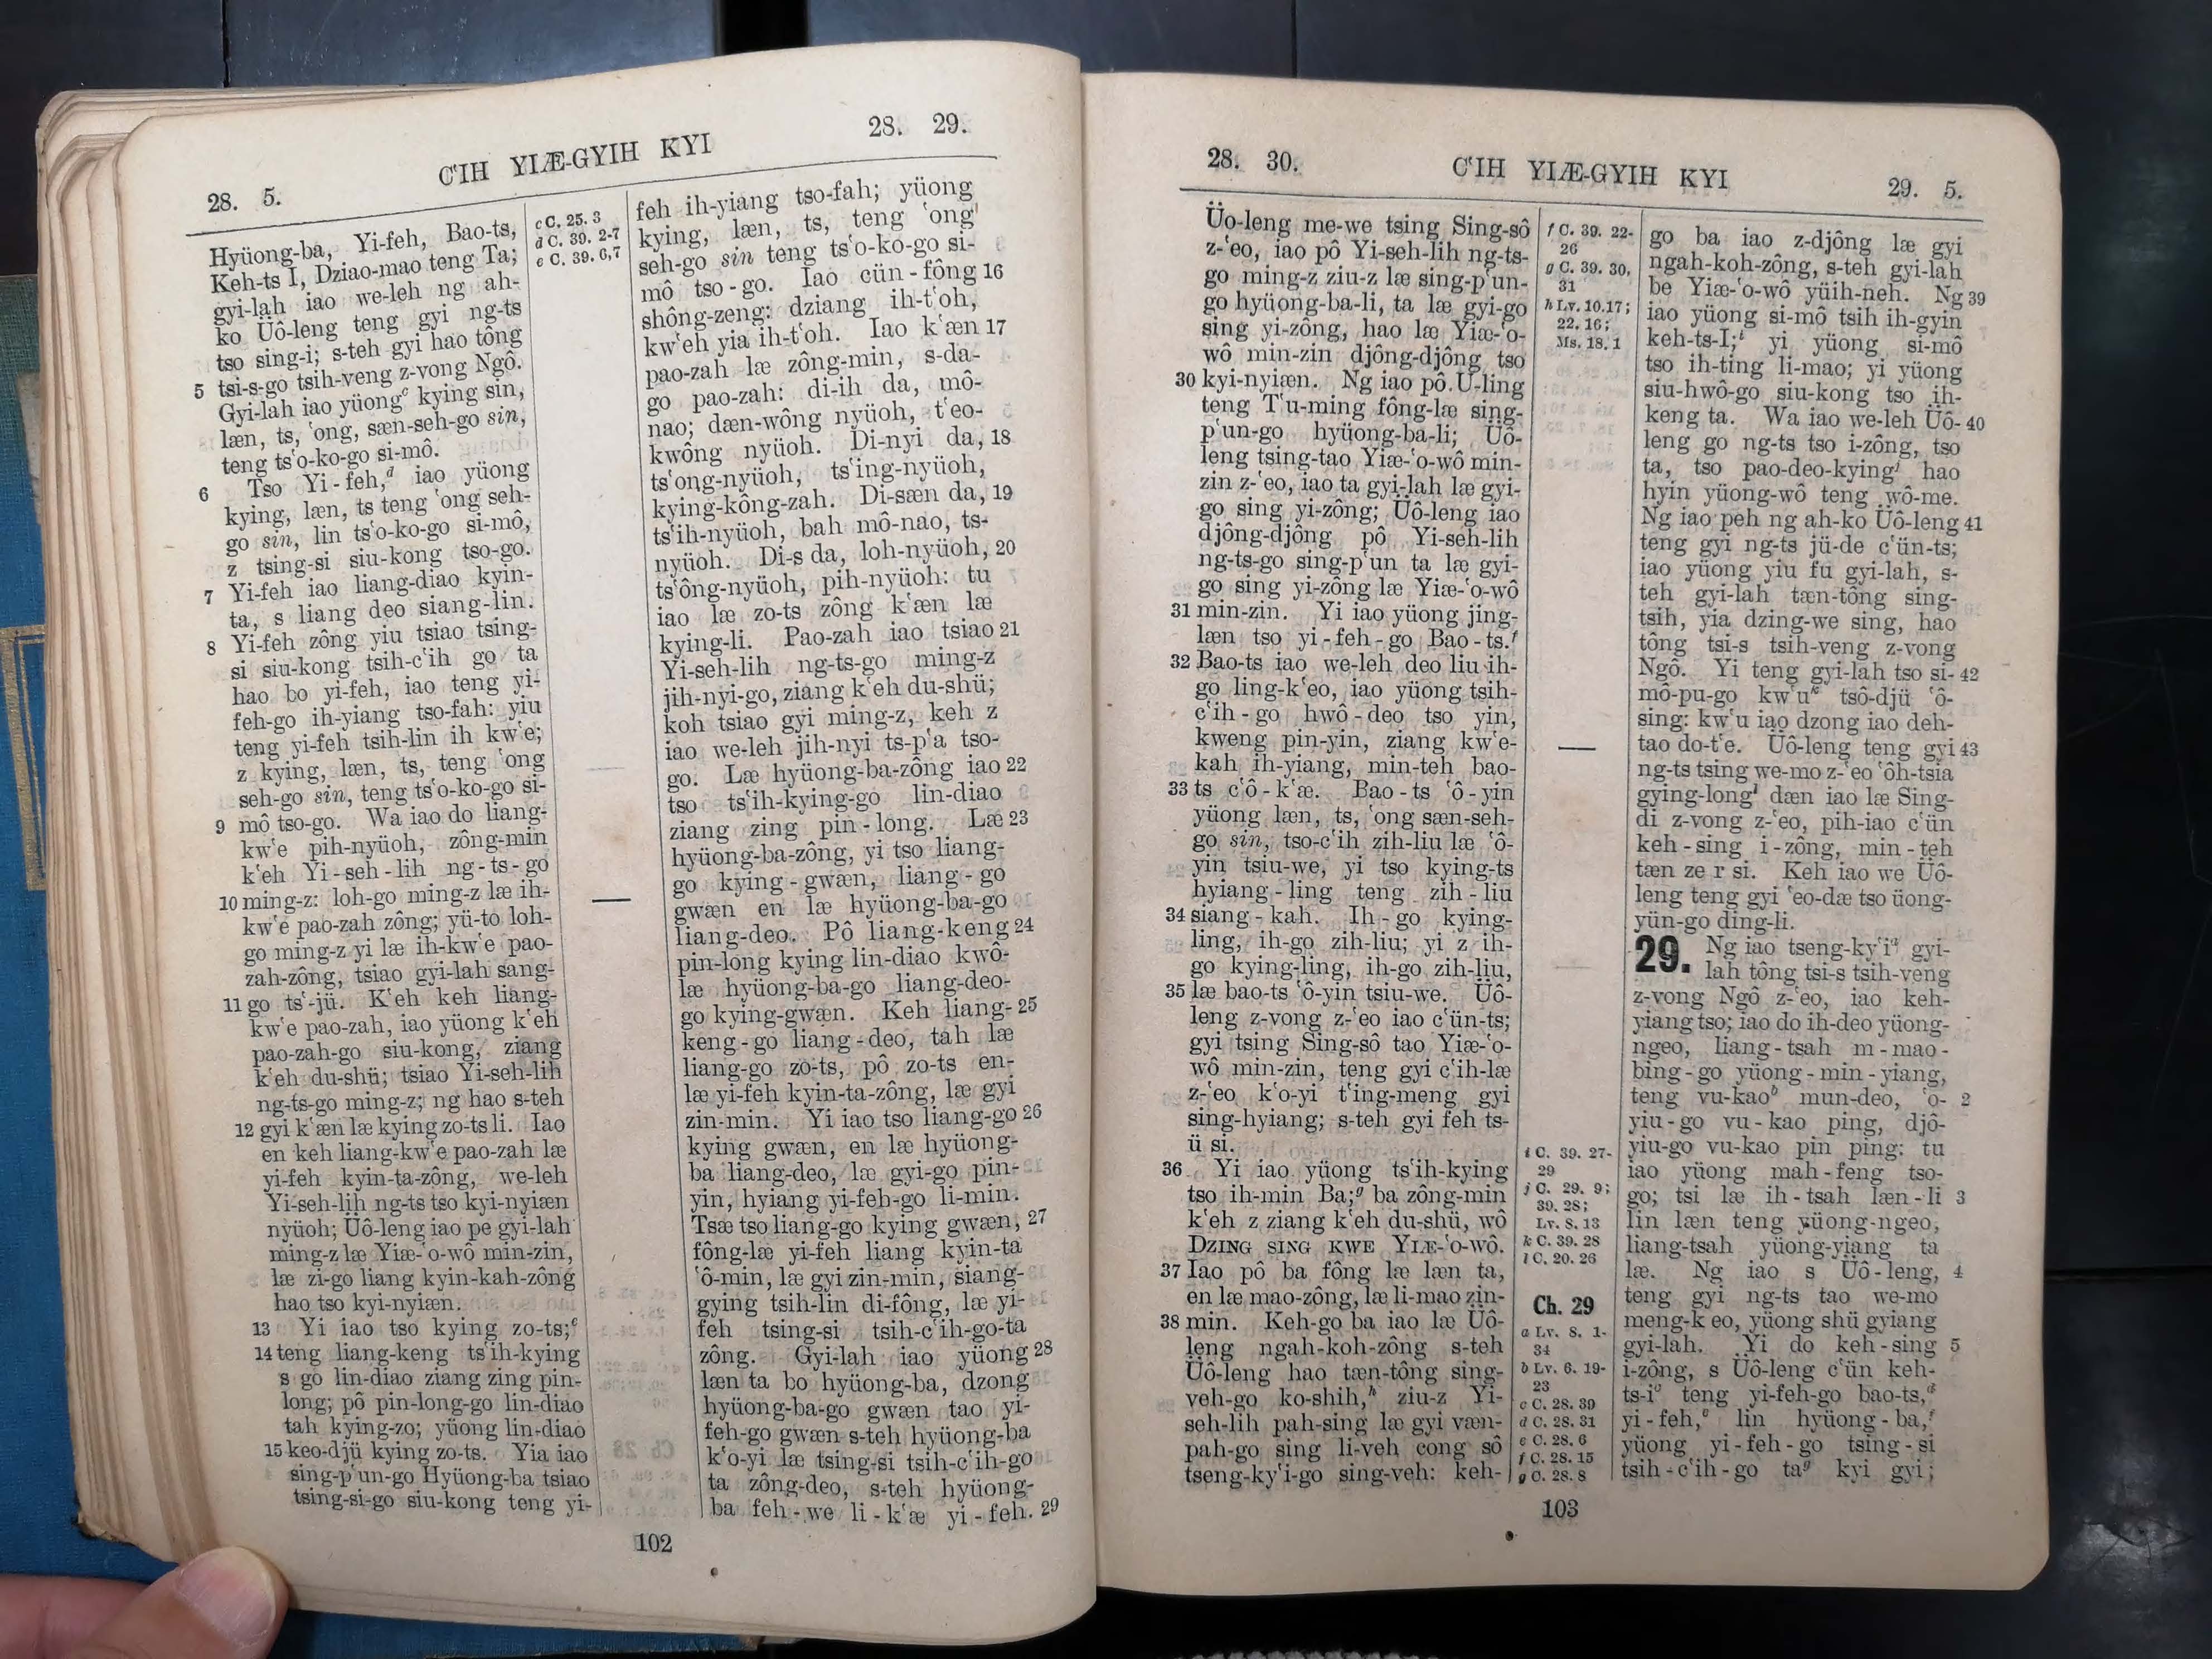 28. 5.
CʻIH YIÆ-GYIH KYI
28. 29.
Hyüong-ba, Yi-feh, Bao-ts,
Keh-ts I, Dziao-mao teng Ta;
gyi-lah iao we-leh ng ah-
ko Üô-leng teng gyi ng-ts
tso sing-i; s-teh gyi hao tông
5 tsi-s-go tsih-veng z-vong Ngô.
Gyi-lah iao yüong c kying sin,
læn, ts, ʻong, sæn-seh-go sin,
teng tsʻo-ko-go si-mô.
6 Tso Yi-feh, d iao yüong
kying, læn, ts teng ʻong seh-
go sin, lin tsʻo-ko-go si-mô,
z tsing-si siu-kong tso-go.
7 Yi-feh iao liang-diao kyin-
ta, s liang deo siang-lin.
8 Yi-feh zông yiu tsiao tsing-
si siu-kong tsih-cʻih go ta
hao bo yi-feh, iao teng yi-
feh-go ih-yiang tso-fah: yiu
teng yi-feh tsih-lin ih kwʻe;
z kying, læn, ts, teng ʻong
seh-go sin, teng tsʻo-ko-go si-
9 mô tso-go. Wa iao do liang-
kwʻe pih-nyüoh, zông-min
kʻeh Yi-seh-lih ng-ts-go
10 ming-z: loh-go ming-z læ ih-
kwʻe pao-zah zông; yü-to loh-
go ming-z yi læ ih-kwʻe pao-
zah-zông, tsiao gyi-lah sang-
11 go tsʻ-jü. Kʻeh keh liang-
kwʻe pao-zah, iao yüong kʻeh
pao-zah-go siu-kong, ziang
kʻeh du-shü; tsiao Yi-seh-lih
ng-ts-go ming-z; ng hao s-teh
12 gyi kʻæn læ kying zo-ts li. Iao
en keh liang-kwʻe pao-zah læ
yi-feh kyin-ta-zông, we-leh
Yi-seh-lih ng-ts tso kyi-nyiæn
nyüoh; Üô-leng iao pe gyi-lah
ming-z læ Yiæ-ʻo-wô min-zin,
læ zi-go liang kyin-kah-zông
hao tso kyi-nyiæn.
13 Yi iao tso kying zo-ts; e
14 teng liang-keng tsʻih-kying
s go lin-diao ziang zing pin-
long; pô pin-long-go lin-diao
tah kying-zo; yüong lin-diao
15 keo-djü kying zo-ts. Yia iao
sing-pʻun-go Hyüong-ba tsiao
tsing-si-go siu-kong teng yi-
c C. 25. 3
d C. 39. 2-7
e C. 39. 6,7
feh ih-yiang tso-fah; yüong
kying, læn, ts, teng ʻong
seh-go sin teng tsʻo-ko-go si-
mô tso-go. Iao cün-fông 16
shông-zeng: dziang ih-tʻoh,
kwʻeh yia ih-tʻoh. Iao kʻæn 17
pao-zah læ zông-min, s-da-
go pao-zah: di-ih da, mô-
nao; dæn-wông nyüoh, tʻeo-
kwông nyüoh. Di-nyi da, 18
tsʻong-nyüoh, tsʻing-nyüoh,
kying-kông-zah. Di-sæn da, 19
tsʻih-nyüoh, bah mô-nao, ts-
nyüoh. Di-s da, loh-nyüoh, 20
tsʻông-nyüoh, pih-nyüoh: tu
iao læ zo-ts zông kʻæn læ
kying-li. Pao-zah iao tsiao 21
Yi-seh-lih ng-ts-go ming-z
jih-nyi-go, ziang kʻeh du-shü;
koh tsiao gyi ming-z, keh z
iao we-leh jih-nyi ts-pʻa tso-
go. Læ hyüong-ba-zông iao 22
tso tsʻih-kying-go lin-diao
ziang zing pin-long. Læ 23
hyüong-ba-zông, yi tso liang-
go kying-gwæn, liang-go
gwæn en læ hyüong-ba-go
liang-deo. Pô liang-keng 24
pin-long kying lin-diao kwô-
læ hyüong-ba-go liang-deo-
go kying-gwæn. Keh liang- 25
keng-go liang-deo, tah læ
liang-go zo-ts, pô zo-ts en-
læ yi-feh kyin-ta-zông, læ gyi
zin-min. Yi iao tso liang-go 26
kying gwæn, en læ hyüong-
ba liang-deo, læ gyi-go pin-
yin, hyiang yi-feh-go li-min.
Tsæ tso liang-go kying gwæn, 27
fông-læ yi-feh liang kyin-ta
ʻô-min, læ gyi zin-min, siang-
gying tsih-lin di-fông, læ yi-
feh tsing-si tsih-cʻih-go-ta
zông. Gyi-lah iao yüong 28
læn ta bo hyüong-ba, dzong
hyüong-ba-go gwæn tao yi-
feh-go gwæn s-teh hyüong-ba
kʻo-yi læ tsing-si tsih-cʻih-go
ta zông-deo, s-teh hyüong-
ba feh-we li-kʻæ yi-feh. 29
102
28. 30.
CʻIH YIÆ-GYIH KYI
29. 5.
Üo-leng me-we tsing Sing-sô
z-ʻeo, iao pô Yi-seh-lih ng-ts-
go ming-z ziu-z læ sing-pʻun-
go hyüong-ba-li, ta læ gyi-go
sing yi-zông, hao læ Yiæ-ʻo-
wô min-zin djông-djông tso
30 kyi-nyiæn. Ng iao pô U-ling
teng Tʻu-ming fông-læ sing-
pʻun-go hyüong-ba-li; Üô-
leng tsing-tao Yiæ-ʻo-wô min-
zin z-ʻeo, iao ta gyi-lah læ gyi-
go sing yi-zông; Üô-leng iao
djông-djông pô Yi-seh-lih
ng-ts-go sing-pʻun ta læ gyi-
go sing yi-zông læ Yiæ-ʻo-wô
31 min-zin. Yi iao yüong jing-
læn tso yi-feh-go Bao-ts. f
32 Bao-ts iao we-leh deo liu ih-
go ling-kʻeo, iao yüong tsih-
cʻih-go hwô-deo tso yin,
kweng pin-yin, ziang kwʻe-
kah ih-yiang, min-teh bao-
33 ts cʻô-kʻæ. Bao-ts ʻô-yin
yüong læn, ts, ʻong sæn-seh-
go sin, tso-cʻih zih-liu læ ʻô-
yin tsiu-we, yi tso kying-ts
hyiang-ling teng zih-liu
34 siang-kah. Ih-go kying-
ling, ih-go zih-liu; yi z ih-
go kying-ling, ih-go zih-liu,
35 læ bao-ts ʻô-yin tsiu-we. Üô-
leng z-vong z-ʻeo iao cʻün-ts;
gyi tsing Sing-sô tao Yiæ-ʻo-
wô min-zin, teng gyi cʻih-læ
z-ʻeo kʻo-yi tʻing-meng gyi
sing-hyiang; s-teh gyi feh ts-
ü si.
36 Yi iao yüong tsʻih-kying
tso ih-min Ba; g ba zông-min
kʻeh z ziang kʻeh du-shü, wô
DZING SING KWE YIÆ-ʻO-WÔ.
37 Iao pô ba fông læ læn ta,
en læ mao-zông, læ li-mao zin-
38 min. Keh-go ba iao læ Üô-
leng ngah-koh-zông s-teh
Üô-leng hao tæn-tông sing-
veh-go ko-shih, h ziu-z Yi-
seh-lih pah-sing læ gyi væn-
pah-go sing li-veh cong sô
tseng-kyʻi-go sing-veh: keh-
f C. 39. 22-
26
g C. 39. 30,
31
h Lv. 10. 17;
22. 16;
Ms. 18. 1
i C. 39. 27-
29
j C. 29. 9;
39. 28;
Lv. 8. 13
k C. 39. 28
l C. 20. 26
Ch. 29
a Lv. 8. 1-
34
b Lv. 6. 19-
23
c C. 28. 39
d C. 28. 31
e C. 28. 6
f C. 28. 15
g C. 28. 8
go ba iao z-djông læ gyi
ngah-koh-zông, s-teh gyi-lah
be Yiæ-ʻo-wô yüih-neh. Ng 39
iao yüong si-mô tsih ih-gyin
keh-ts-I; i yi yüong si-mô
tso ih-ting li-mao; yi yüong
siu-hwô-go siu-kong tso ih-
keng ta. Wa iao we-leh Üô- 40
leng go ng-ts tso i-zông, tso
ta, tso pao-deo-kying j hao
hyin yüong-wô teng wô-me.
Ng iao peh ng ah-ko Üô-leng 41
teng gyi ng-ts jü-de cʻün-ts;
iao yüong yiu fu gyi-lah, s-
teh gyi-lah tæn-tông sing-
tsih, yia dzing-we sing, hao
tông tsi-s tsih-veng z-vong
Ngô. Yi teng gyi-lah tso si- 42
mô-pu-go kwʻu k tsô-djü ʻô-
sing: kwʻu iao dzong iao deh-
tao do-tʻe. Üô-leng teng gyi 43
ng-ts tsing we-mo z-ʻeo ʻôh-tsia
gying-long l dæn iao læ Sing-
di z-vong z-ʻeo, pih-iao cʻün
keh-sing i-zông, min-teh
tæn ze r si. Keh iao we Üô-
leng teng gyi ʻeo-dæ tso üong-
yün-go ding-li.
29. Ng iao tseng-kyʻi a gyi-
lah tông tsi-s tsih-veng
z-vong Ngô z-ʻeo, iao keh-
yiang tso; iao do ih-deo yüong-
ngeo, liang-tsah m-mao-
bing-go yüong-min-yiang,
teng vu-kao b mun-deo, ʻo- 2
yiu-go vu-kao ping, djô-
yiu-go vu-kao pin ping: tu
iao yüong mah-feng tso-
go; tsi læ ih-tsah læn-li 3
lin læn teng yüong-ngeo,
liang-tsah yüong-yiang ta
læ. Ng iao s Üô-leng, 4
teng gyi ng-ts tao we-mo
meng-k eo, yüong shü gyiang
gyi-lah. Yi do keh-sing 5
i-zông, s Üô-leng cʻün keh-
ts-i c teng yi-feh-go bao-ts, d
yi-feh, e lin hyüong-ba, f
yüong yi-feh-go tsing-si
tsih-cʻih-go ta g kyi gyi;
103